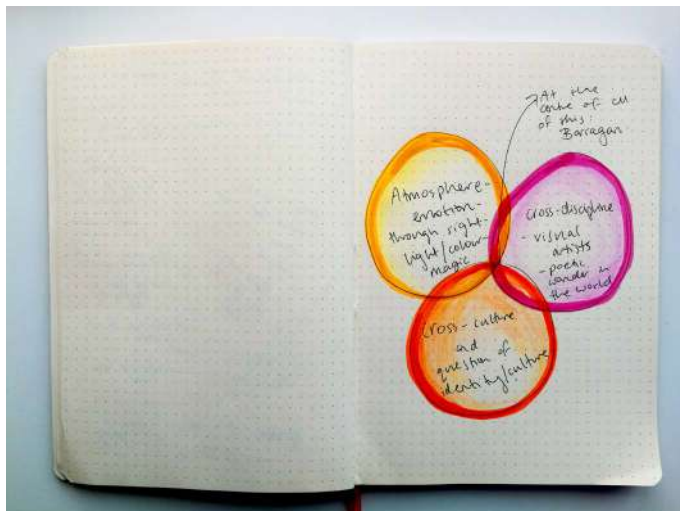 At the
centre of all
of this:
Barragan
Atmosphere-
emotion-
through sight-
light/colour-
magic
cross-discipline
- visual
artists
- poetic
wonder in
the world
cross-culture
and
question of
identity/culture